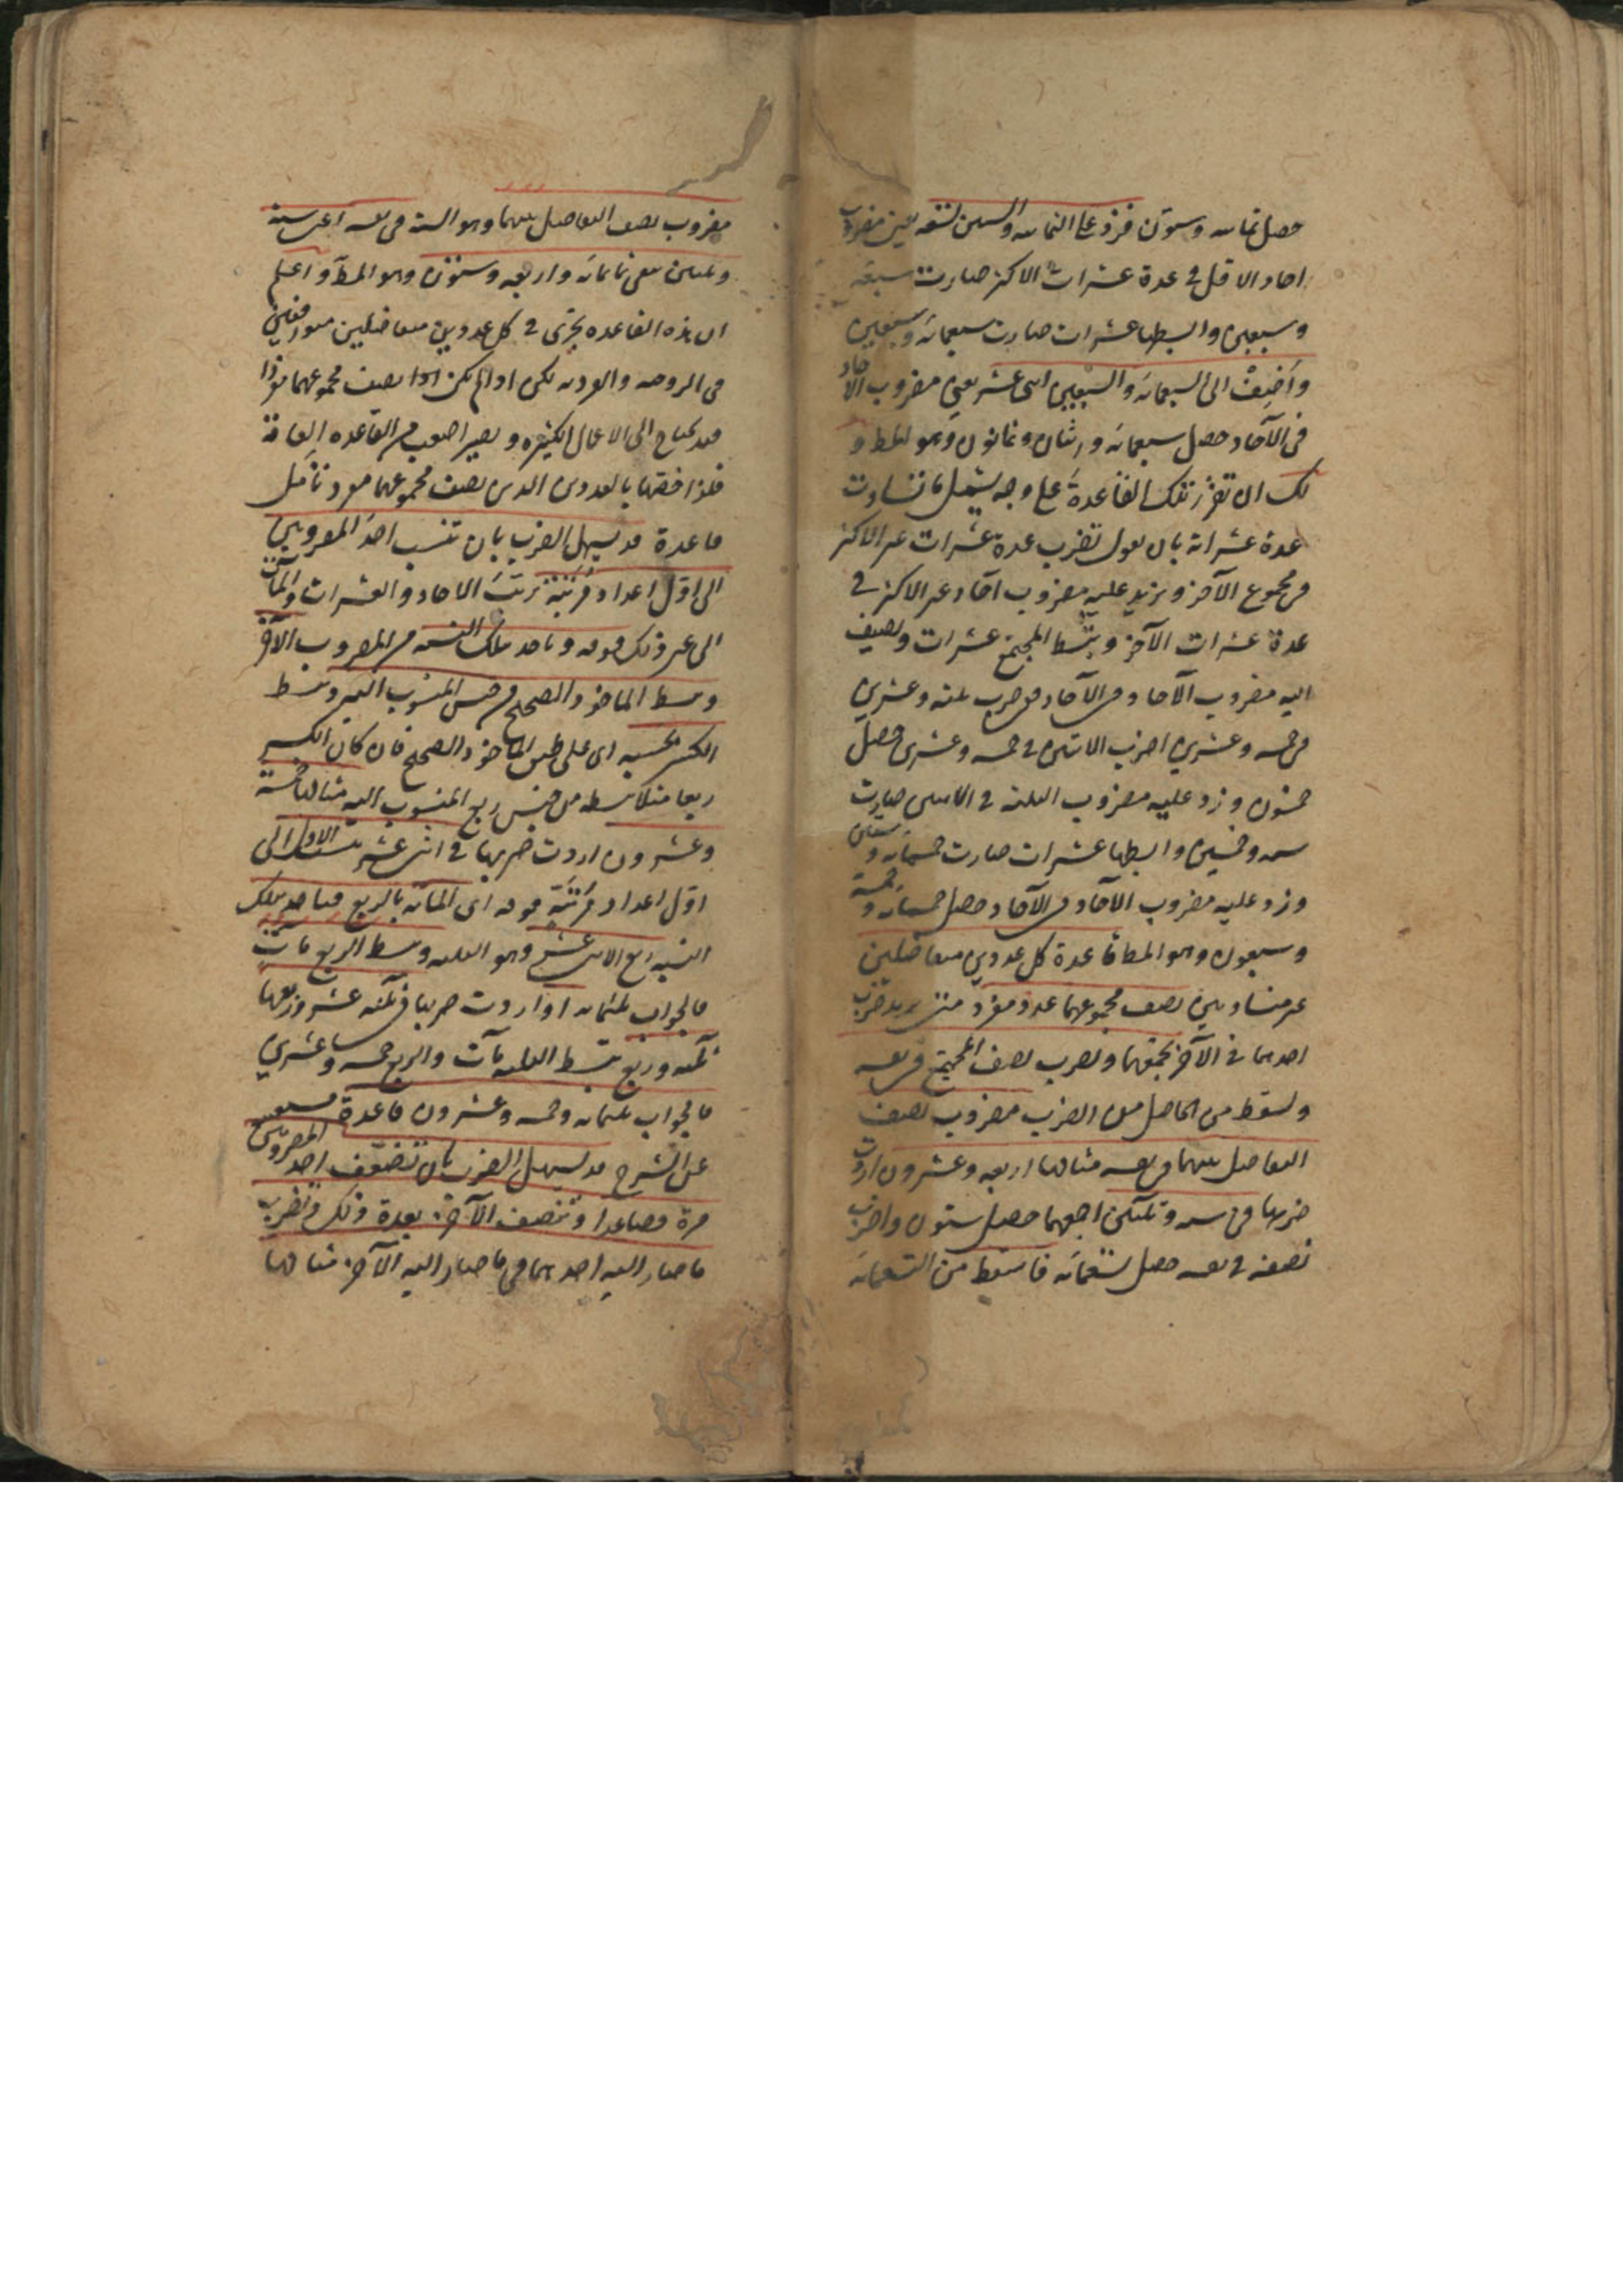 حصل ثمانيه وستون فزد على الثمانيه والستين تسعه يعني مضروب
احاد الاقل في عدة عشرات الاكثر صارت سبعة
وسبعين وابسطها عشرات صارت سبعمائة وسبعين
واضيف الى السبعمائة والسبعين اثنى عشر يعني مضروب الآحاد
في الآحاد حصل سبعمائة واثنان وثمانون وهو المط و
لك ان تقرر تلك القاعدة على وجه يشمل ما تساوت
عدة عشراته بان تقول تضرب عدة عشرات غير الاكثر
في مجموع الآخر وتزيد عليه مضروب آحاد غير الاكثر في
عدة عشرات الآخر وتبسط المجتمع عشرات وتضيف
اليه مضروب الآحاد في الآحاد ففي ضرب ثلثة وعشرين
في خمسة وعشرين اضرب الاثنين في خمسة وعشرين حصل
خمسون وزد عليه مضروب الثلثة في الاثنين صارت
ستة وخمسين وابسطها عشرات صارت خمسمائة وستين
وزد عليه مضروب الآحاد في الآحاد حصل خمسمائة وخمسة
وسبعون وهو المط قاعدة كل عددين متفاضلين
غير متساويين نصف مجموعهما عدد مفرد متى يريد ضرب
احدهما في الآخر تجمعهما وتضرب نصف المجتمع في نفسه
وتسقط من الحاصل من الضرب مضروب نصف
التفاضل بينهما في نفسه مثالها اربعه وعشرون اردت
ضربها في ستة وثلثين اجمعهما حصل ستون واضرب
نصفه في نفسه حصل تسعمائة فاسقط من التسعمائة
مضروب نصف التفاضل بينهما وهو الستة في نفسه اعني ستة
وثلثين بقى ثمانمائة واربعه وستون وهو المط واعلم
ان هذه القاعده تجرى في كل عددين متفاضلين متوافقين
في الزوجيه والفرديه لكن اذا لم يكن نصف مجموعهما مفردا
قد يحتاج الى الاعمال الكثيره ويصير اصعب من القاعده العامة
فلذا خصها بالعددين الذين نصف مجموعهما مفرد تأمل
قاعدة قد يسهل الضرب بان تنسب احد المضروبين
الى اول اعداد مرتبة مراتب الاحاد والعشرات والمآت
الى غير ذلك فوقه وتاخذ بتلك النسبة من المضروب الآخر
وتبسط الماخوذ الصحيح من جنس المنسوب اليه وتبسط
الكسر بحسبه اى على طبق الماخوذ الصحيح فان كان الكسر
ربعا مثلا تبسطه من جنس ربع المنسوب اليه مثالها خمسة
وعشرون اردت ضربها في اثنى عشر تنسب الاول الى
اول اعداد مرتبة فوقه اى المائة بالربع فتاخذ بتلك
النسبة ربع الاثنى عشر وهو الثلثة وتبسط الربع مآت
فالجواب ثلثمائة او اردت ضربها في ثلثة عشر فربعها
ثلثة وربع تبسط الثلثة مآت والربع خمسة وعشرين
فالجواب ثلثمائة وخمسة وعشرون قاعدة
على الشرح قد يسهل الضرب بان تضعف احد المضروبين
مرة فصاعدا وتنصف الآخر بعدة ذلك وتضرب
ما صار اليه احدهما في ما صار اليه الآخر مثالها